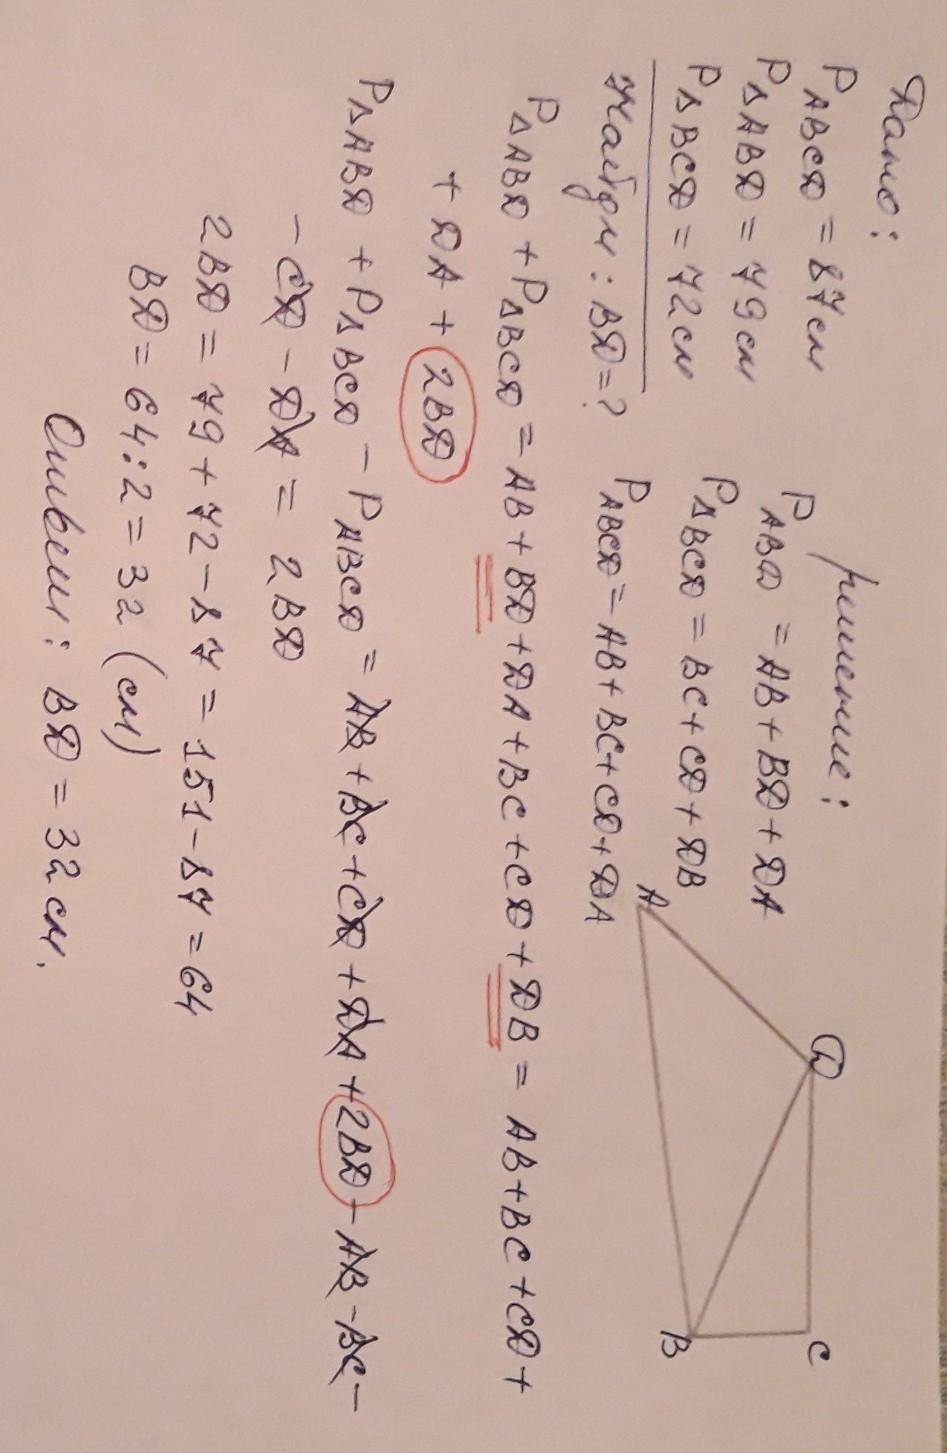 Дано:
P ABCD = 87 см
P△ABD = 79 см
P△BCD = 72 см
Найти: BD = ?
решение:
P ABD = AB + BD + DA
P△BCD = BC + CD + DB
P ABCD = AB + BC + CD + DA
A
D
C
B
P△ABD + P△BCD = AB + BD + DA + BC + CD + DB = AB + BC + CD +
+ DA + 2BD
P△ABD + P△BCD - P ABCD = AB + BC + CD + DA + 2BD - AB - BC -
- CD - DA = 2BD
2BD = 79 + 72 - 87 = 151 - 87 = 64
BD = 64 : 2 = 32 (см)
Ответ: BD = 32 см.